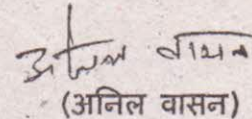 अनिल वासन
(अनिल वासन)